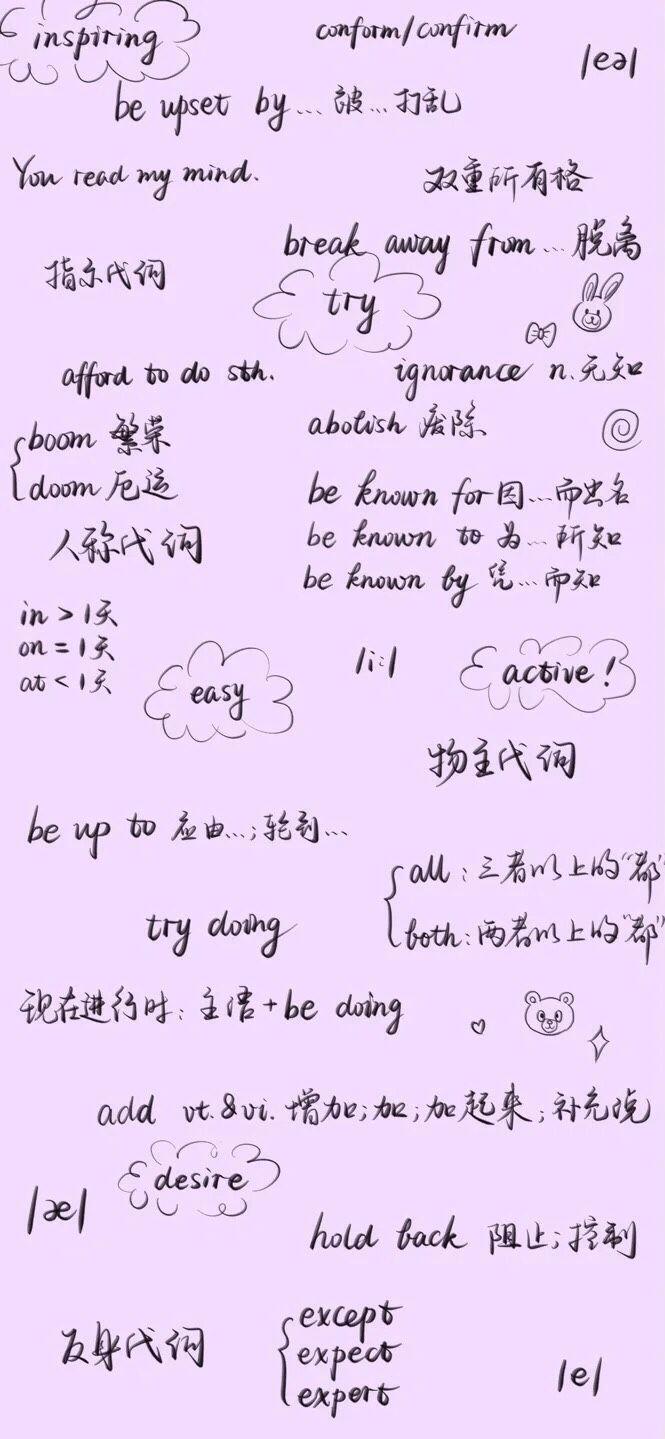 inspiring
conform/confirm
/eə/
be upset by...被...打乱
You read my mind.
双重所有格
break away from...脱离
指示代词
try
afford to do sth.
ignorance n.无知
boom 繁荣
doom 厄运
abolish 废除
be known for因...而出名
be known to 为...所知
be known by 凭...而知
人称代词
in > 1天
on = 1天
at < 1天
easy
/i:/
active!
物主代词
be up to 应由...;轮到...
all:三者以上的"都"
both:两者以上的"都"
try doing
现在进行时:主语+be doing
add vt.&vi.增加;加;加起来;补充说
desire
/æ/
hold back 阻止;控制
反身代词
except
expect
expert
/e/